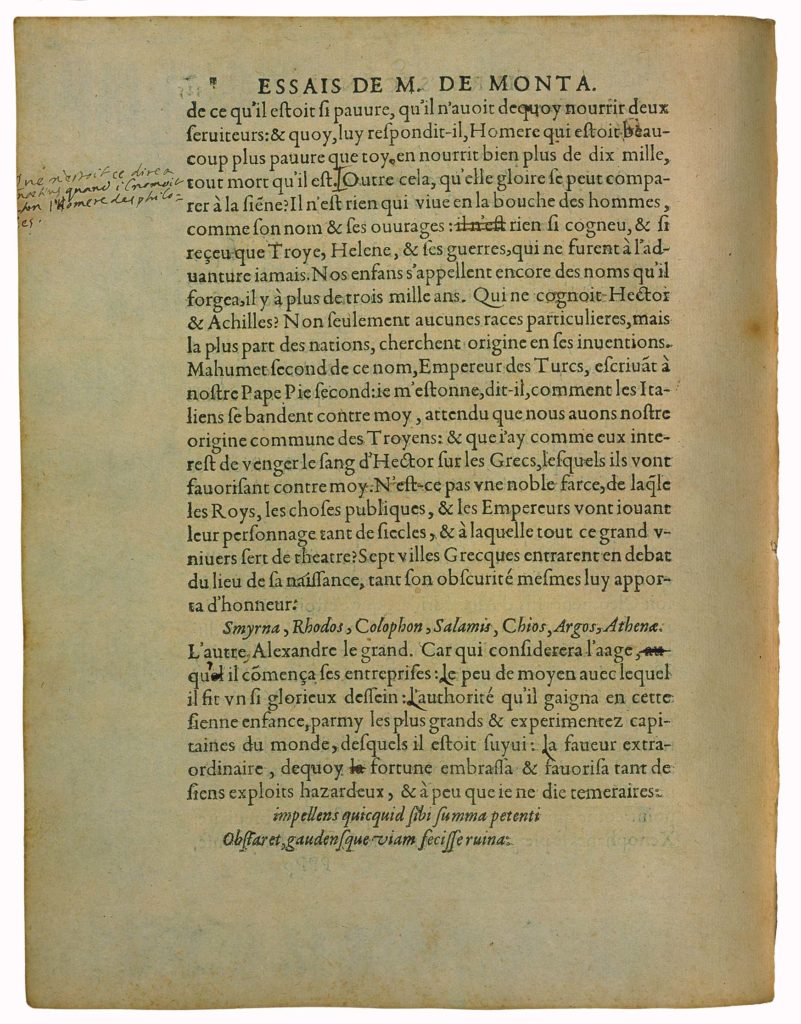 ESSAIS DE M. DE MONTA.
de ce qu'il eſtoit ſi pauure, qu'il n'auoit dequoy nourrir deux
ſeruiteurs: & quoy, luy reſpondit-il, Homere qui eſtoit beau-
coup plus pauure que toy, en nourrit bien plus de dix mille,
tout mort qu'il eſt. Outre cela, qu'elle gloire ſe peut compa-
rer à la ſiẽne? Il n'eſt rien qui viue en la bouche des hommes,
comme ſon nom & ſes ouurages: il n'eſt rien ſi cogneu, & ſi
reçeu que Troye, Helene, & ſes guerres, qui ne furent à l'ad-
uanture iamais. Nos enfans s'appellent encore des noms qu'il
forgea, il y à plus de trois mille ans. Qui ne cognoit Hector
& Achilles? Non ſeulement aucunes races particulieres, mais
la plus part des nations, cherchent origine en ſes inuentions.
Mahumet ſecond de ce nom, Empereur des Turcs, eſcriuãt à
noſtre Pape Pie ſecond: ie m'eſtonne, dit-il, comment les Ita-
liens ſe bandent contre moy, attendu que nous auons noſtre
origine commune des Troyens: & que i'ay comme eux inte-
reſt de venger le ſang d'Hector ſur les Grecs, leſquels ils vont
fauoriſant contre moy. N'eſt-ce pas vne noble farce, de laq̃lle
les Roys, les choſes publiques, & les Empereurs vont iouant
leur perſonnage tant de ſiecles, & à laquelle tout ce grand v-
niuers ſert de theatre? Sept villes Grecques entrarent en debat
du lieu de ſa naiſſance, tant ſon obſcurité meſmes luy appor-
ta d'honneur:
Smyrna, Rhodos, Colophon, Salamis, Chios, Argos, Athenæ.
L'autre, Alexandre le grand. Car qui conſiderera l'aage, au-
qu'il il cõmença ſes entrepriſes: le peu de moyen auec lequel
il fit vn ſi glorieux deſſein: l'authorité qu'il gaigna en cette
ſienne enfance, parmy les plus grands & experimentez capi-
taines du monde, deſquels il eſtoit ſuyui: la faueur extra-
ordinaire, dequoy la fortune embraſſa & fauoriſa tant de
ſiens exploits hazardeux, & à peu que ie ne die temeraires:
impellens quicquid ſibi ſumma petenti
Obſtaret, gaudenſque viam feciſſe ruina:
n'eſtoit ce dire a
quand il nomoit
l'Homere des philo
es.